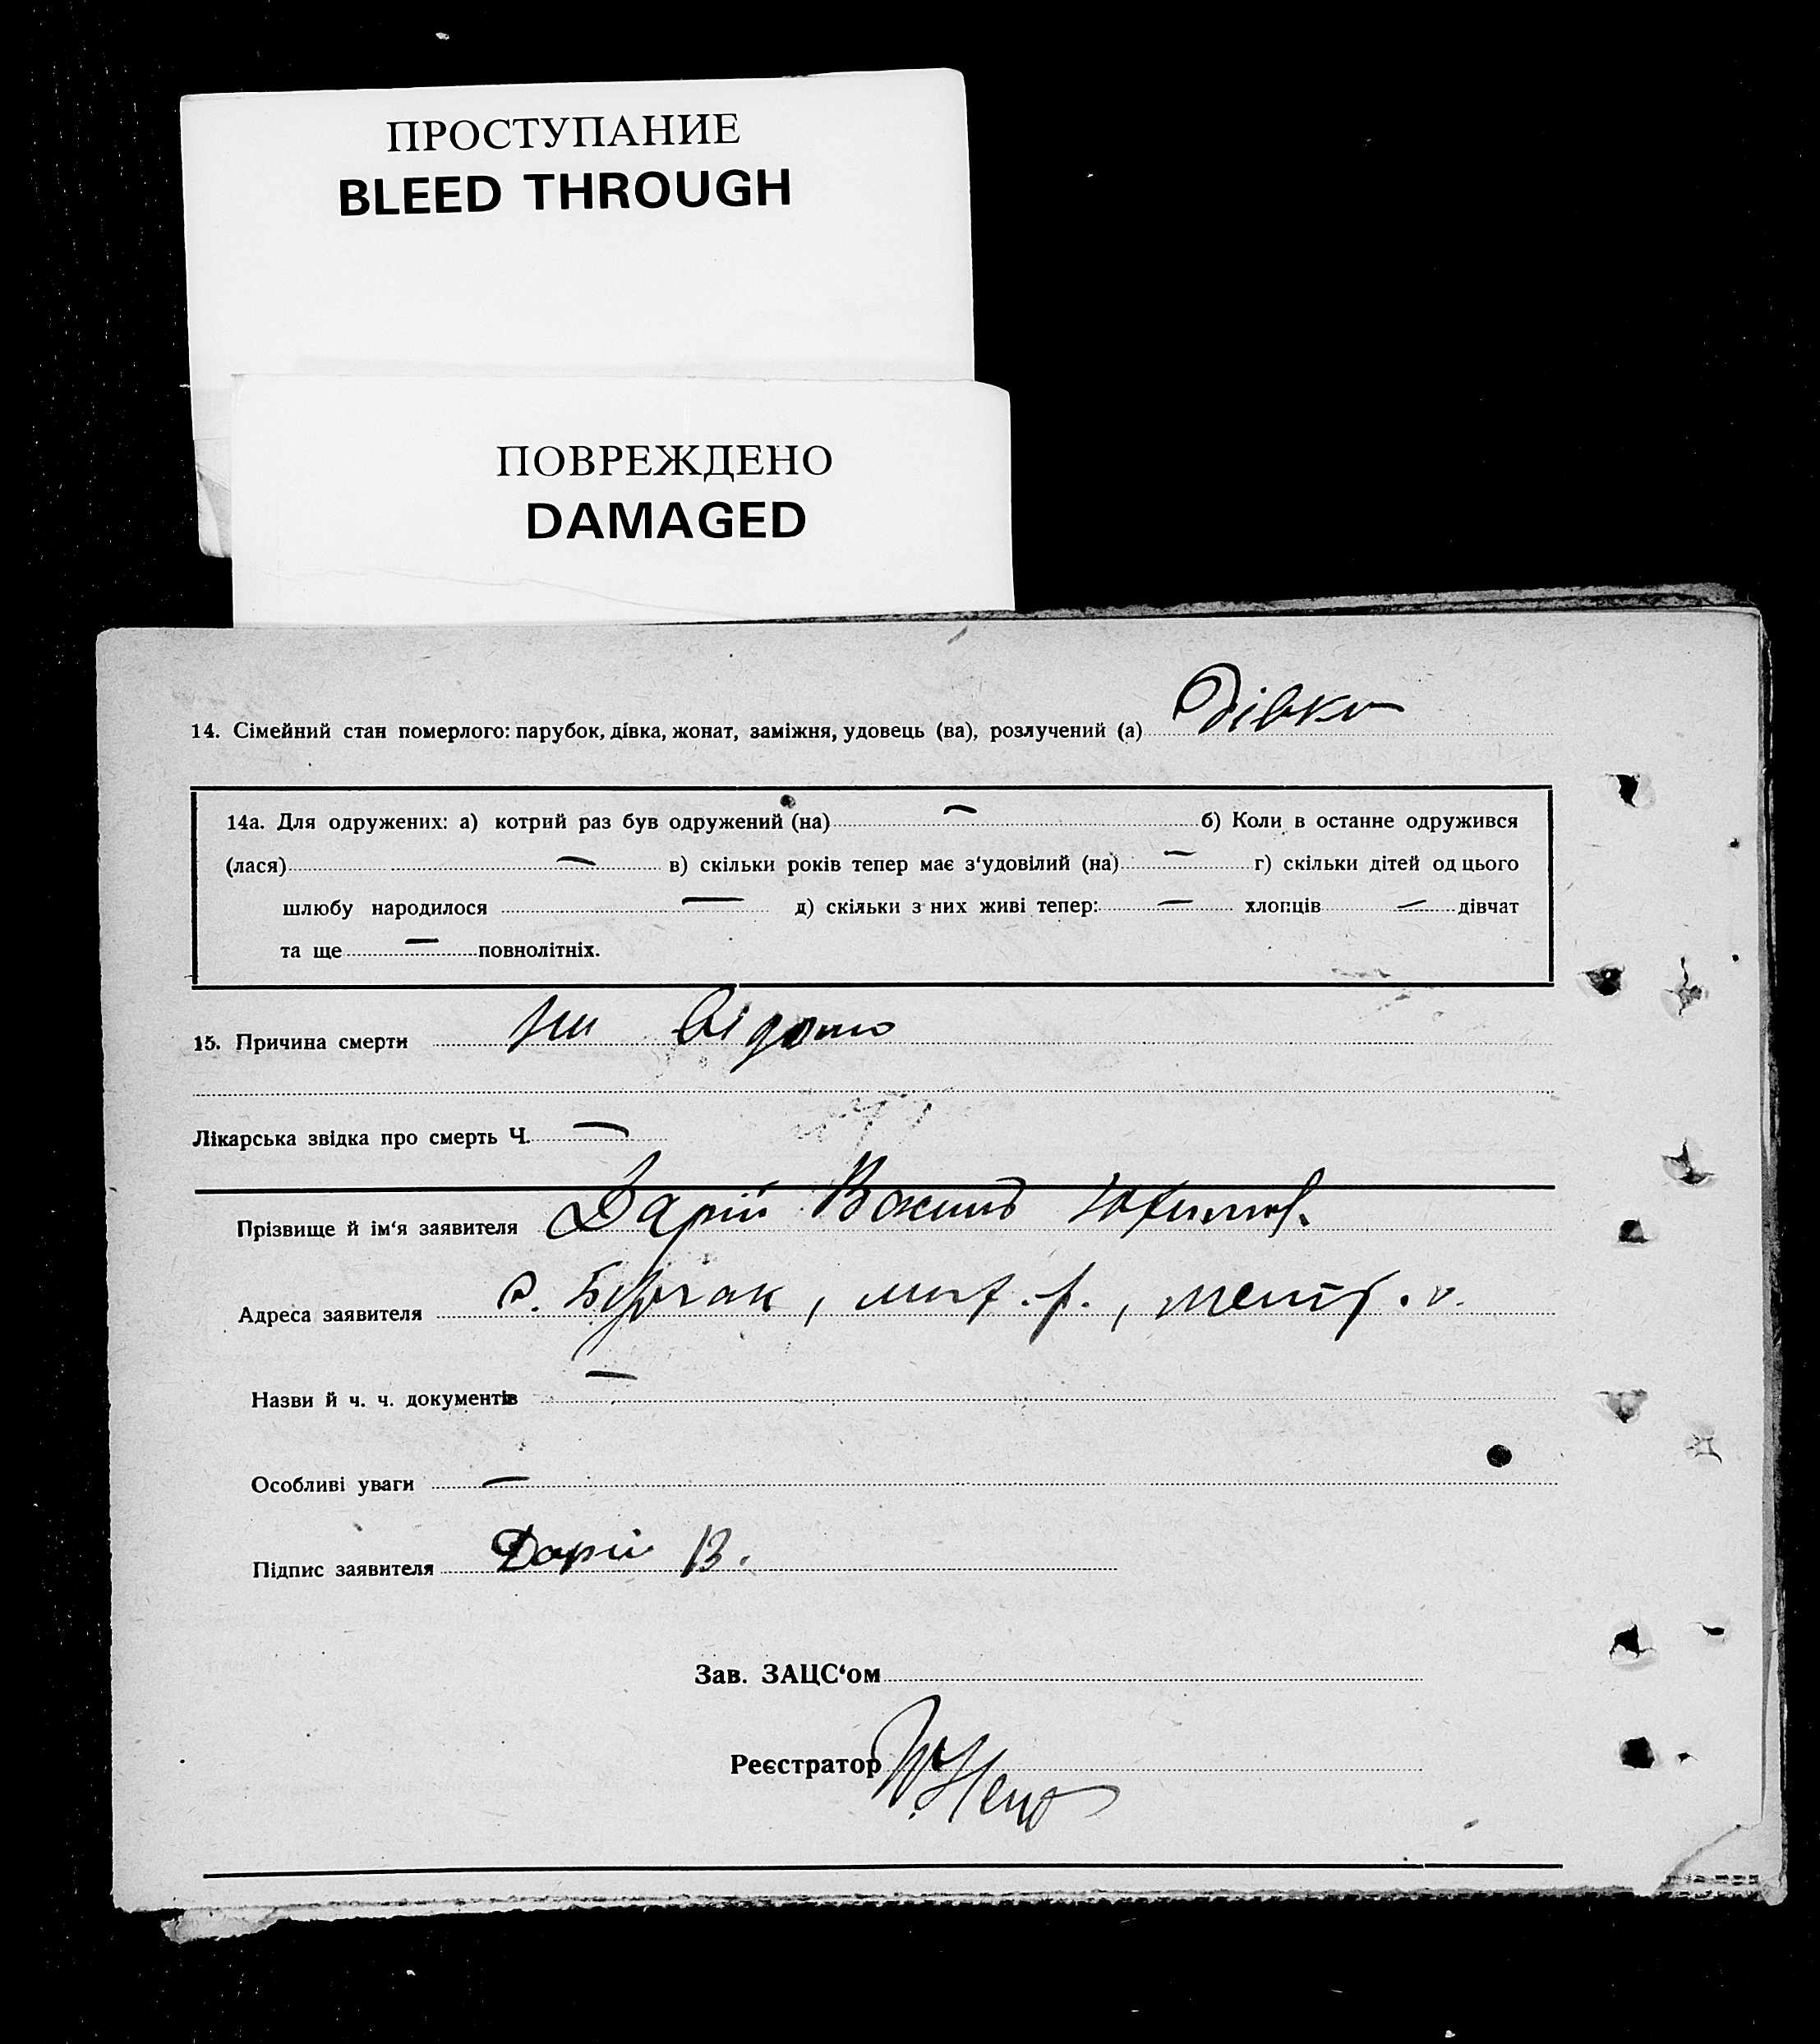 ПРОСТУПАНИЕ
BLEED THROUGH
ПОВРЕЖДЕНО
DAMAGED
14. Сімейний стан померлого: парубок, дівка, жонат, заміжня, удовець (ва), розлучений (а) Дівка
14а. Для одружених: а) котрий раз був одружений (на) — б) Коли в останне одружився
(лася) — в) скільки років тепер має з‘удовілий (на) — г) скільки дітей од цього
шлюбу народилося — д) скільки з них живі тепер: — хлопців — дівчат
та ще — повнолітніх.
15. Причина смерти не відомо
Лікарська звідка про смерть Ч. —
Прізвище й ім‘я заявителя Дарій
Адреса заявителя с.
Назви й ч. ч. документів —
Особливі уваги —
Підпис заявителя Дарій В.
Зав. ЗАЦС‘ом
Реєстратор